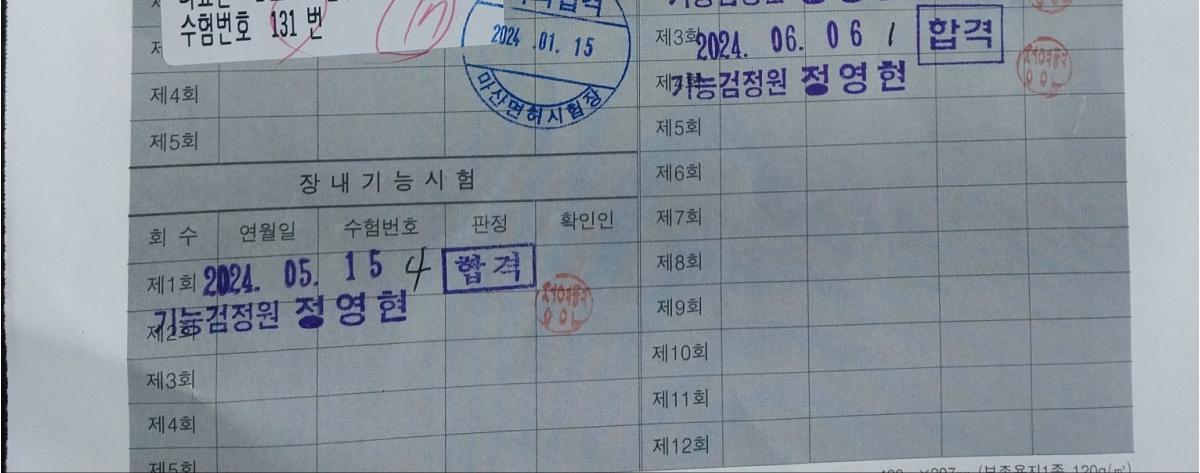 수험번호 131 번
합격
2024 .01. 15
마산면허시험장
제4회
제5회
장내기능시험
회 수 연월일 수험번호 판정 확인인
제1회 2024. 05. 15 4 합격
기능검정원 정영현
제2회
제3회
제4회
제5회
제3회 2024. 06. 06 1 합격
기능검정원 정영현
제5회
제6회
제7회
제8회
제9회
제10회
제11회
제12회
(보존용지1종 120g/㎡)